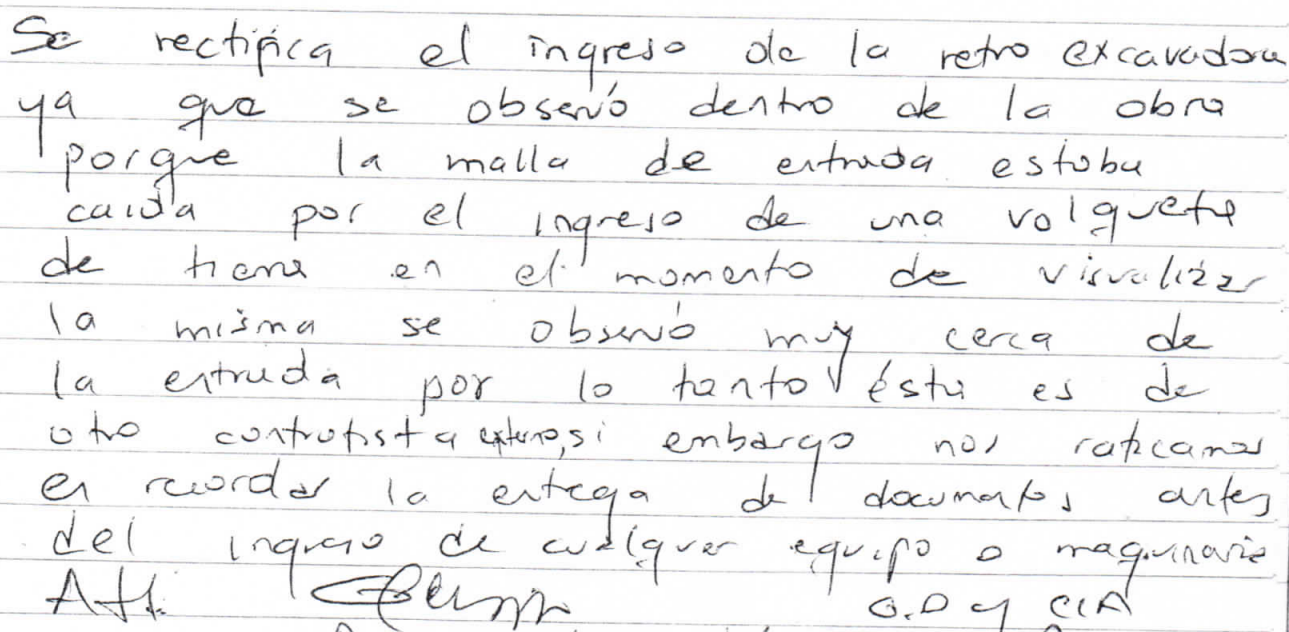 Se rectifica el ingreso de la retro excavadora
ya que se observó dentro de la obra
porque la malla de entrada estaba
caida por el ingreso de una volqueta
de tierra en el momento de visualizar
la misma se observó muy cerca de
la entrada por lo tanto ésta es de
otro contratista externo, si embargo nos raticamos
en recordar la entrega de documentos antes
del ingreso de cualquier equipo o maquinaria
Att. O.D y CIA